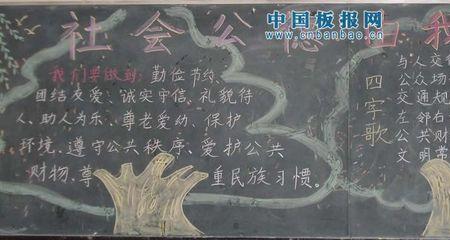 中国板报网
www.cnbanbao.cn
社会公德由我
我们要做到：勤位节约、
团结友爱、诚实守信、礼貌待
人、助人为乐、尊老爱幼、保护
环境、遵守公共秩序、爱护公共
财物、尊重民族习惯。
四字歌
与人交
公众场
交通规
左邻右
公共财
文明常